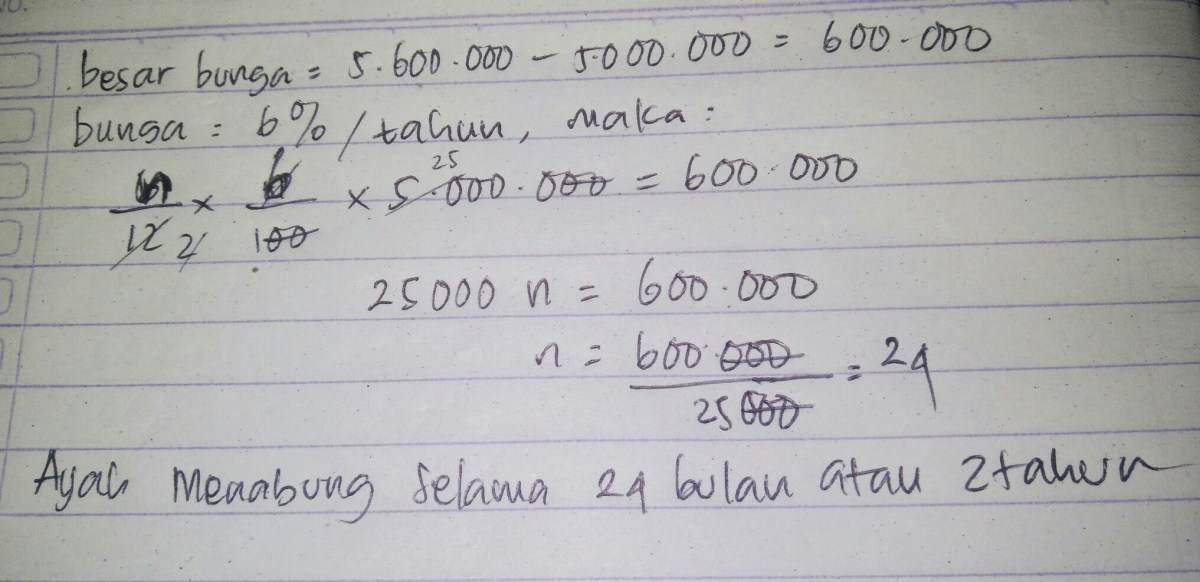 besar bunga = 5.600.000 - 5.000.000 = 600.000
bunga = 6% / tahun, maka :
n/12 2 × 6/100 × 5.000.000 25 = 600.000
25000 n = 600.000
n = 600.000/25000 = 24
Ayah Menabung selama 24 bulan atau 2 tahun